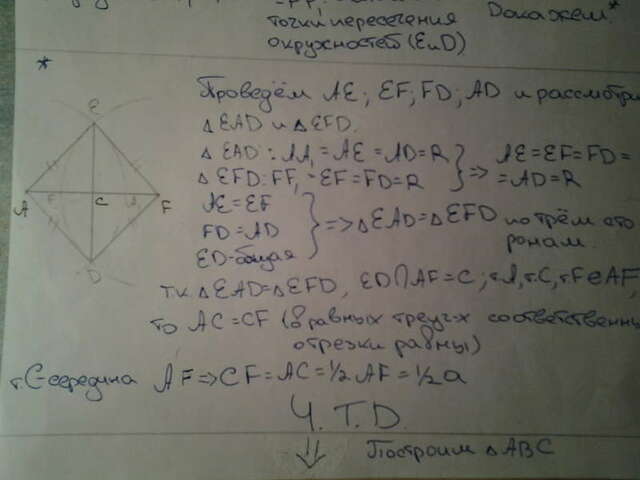 точки пересечения Докажем*
окружностей (E и D)
*
Проведём AE; EF; FD; AD и рассмотри
△EAD и △EFD.
△EAD: AA₁=AE=AD=R
△EFD: FF₁=EF=FD=R
=> AE=EF=FD=
=AD=R
AE=EF
FD=AD
ED-общая
=> △EAD=△EFD по трём сто
ронам.
т.к △EAD=△EFD, ED∩AF=C; т.A, т.C, т.F∈AF,
то AC=CF (в равных треуг-х соответственны
отрезки равны)
т.C-середина AF=>CF=AC=1/2 AF=1/2 a
Ч.Т.D.
⇓ Построим △ABC
E
A
C
F
D